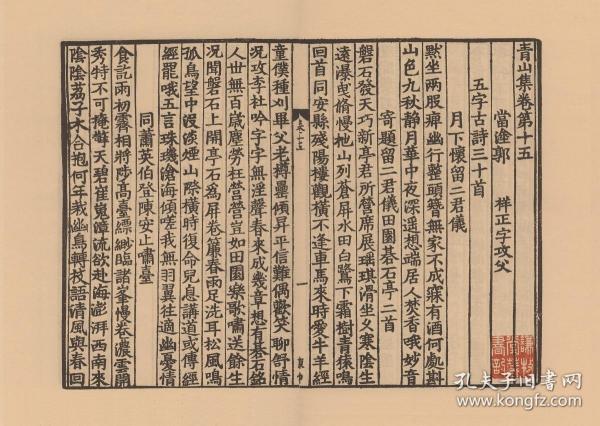 青山集卷第十五
當塗郭 祥正字功父
五字古詩三十首
月下懷留二君儀
默坐兩股痺幽行整頭簪無家不成寐有酒何處斟
山色九秋靜月華中夜深遥想端居人焚香哦妙音
寄題留二君儀田園碁石亭二首
磐石發天巧新亭君所營席展瑶琪滑坐久寒陰生
遠瀑曳脩幔
回首同安縣殘陽樓觀橫不逢車馬來時愛牛羊經
童僕種刈畢父老摶罍傾昇平信難偶歡笑聊舒情
況攻李杜吟字字無淫聲春來成幾章想有碁石銘
人世無百歲塵勞枉營營豈如田園樂歌嘯送餘生
況聞磐石上開亭石爲屏卷簾春雨足洗耳松風鳴
孤鳥望中沒淡煙山際橫時復命兒息講道或傳經
經罷哦五言珠璣滄海傾嗟我無羽翼往適幽憂情
同蕭英伯登陳安止嘯臺
食訖雨初霽相將陟高臺縹緲臨諸峯慢卷濃雲開
秀特不可掩 天碧崔嵬漳流欲赴海澎湃西南來
陰陰荔子木合抱何年栽幽鳥轉枝語清風與春回
孔夫子旧书网
www.kongfz.com